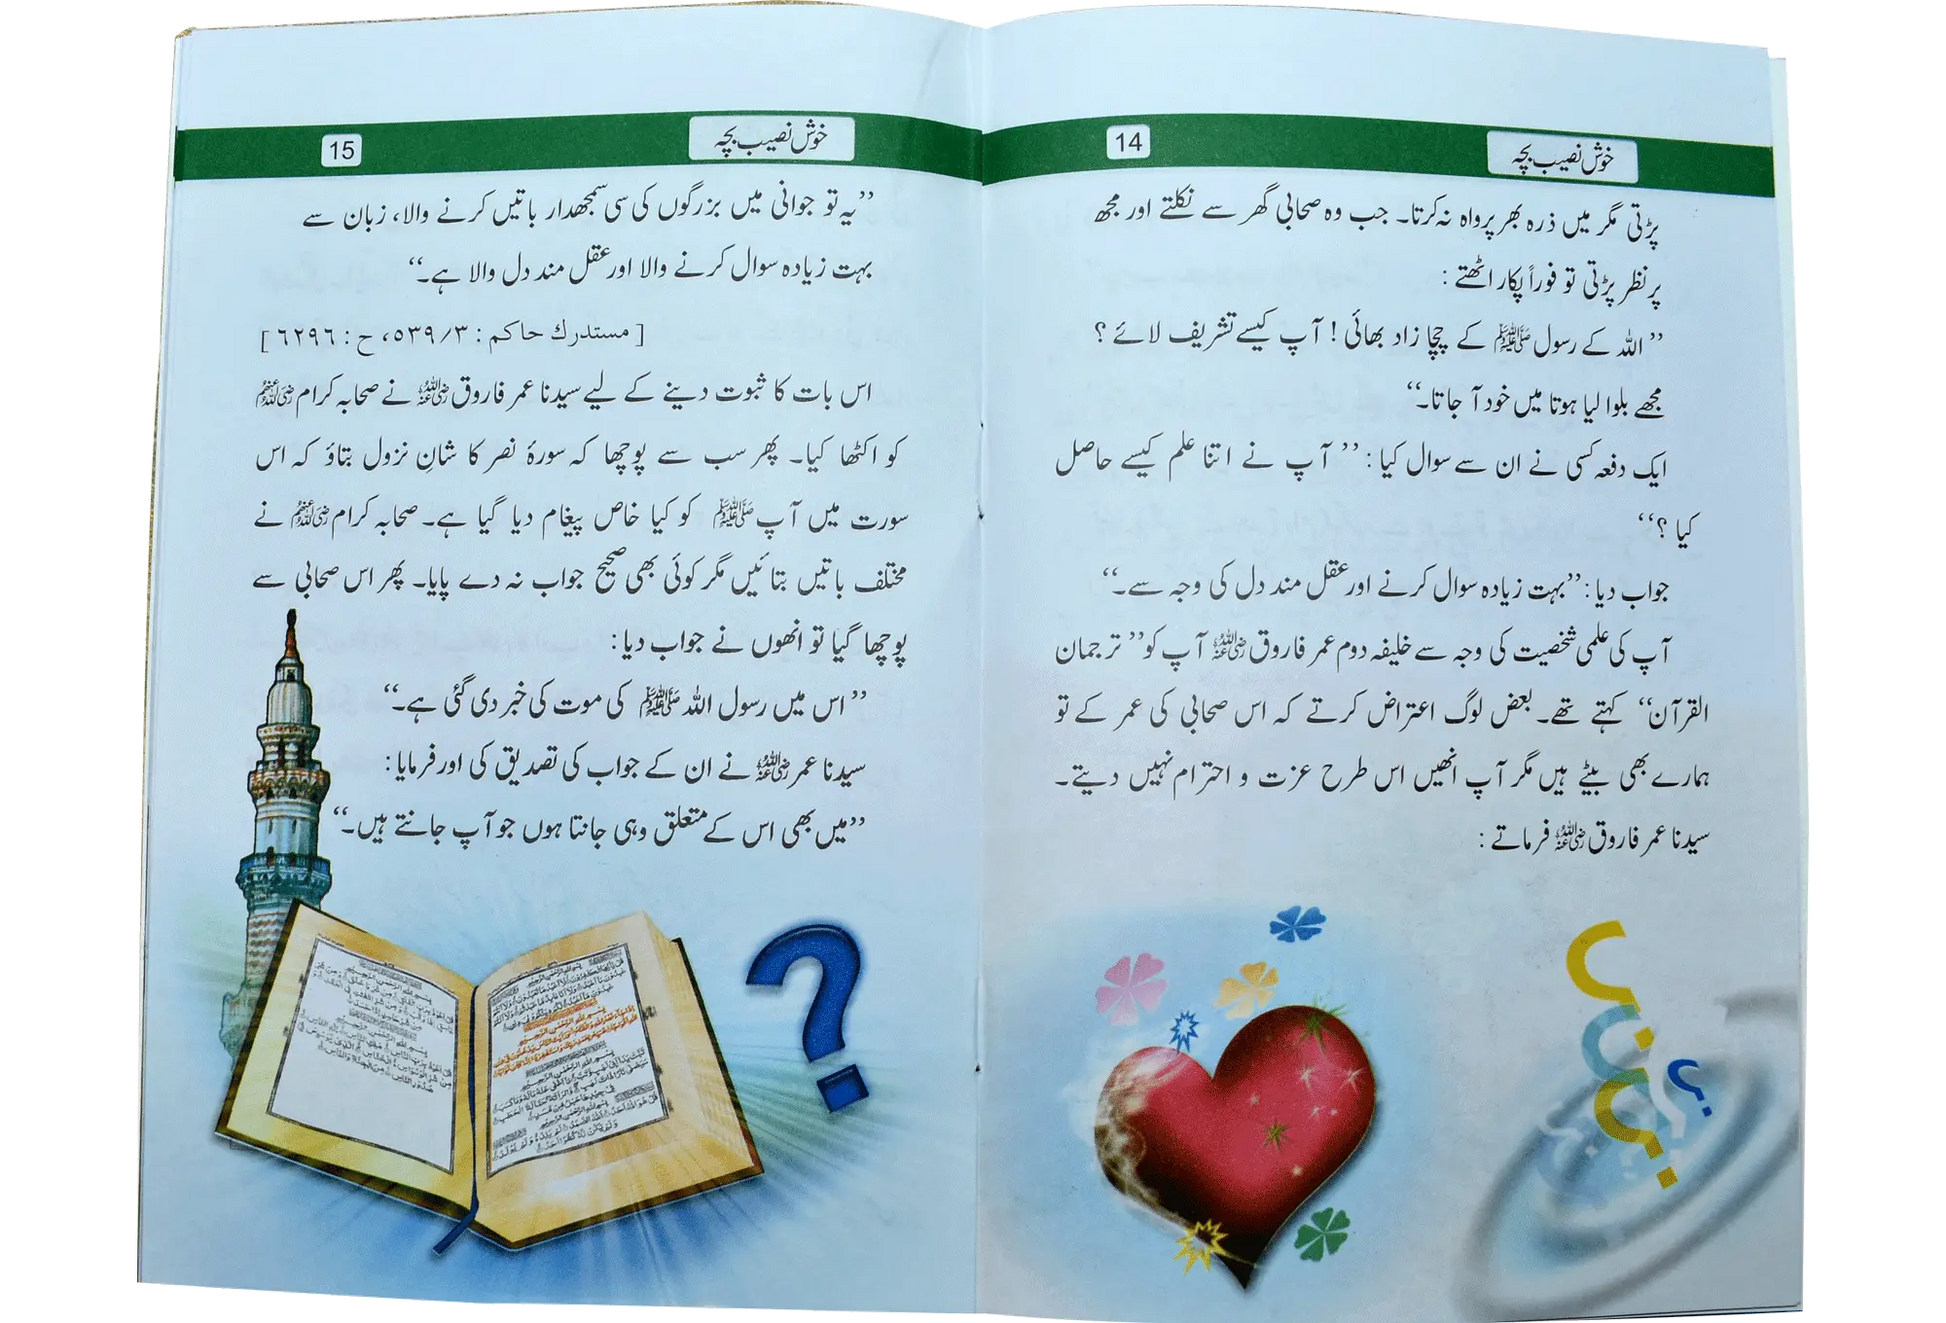 خوش نصیب بچہ
14
پڑتی مگر میں ذرہ بھر پرواہ نہ کرتا۔ جب وہ صحابی گھر سے نکلتے اور مجھ
پر نظر پڑتی تو فوراً پکار اٹھتے :
’’ اللہ کے رسول ﷺ کے چچا زاد بھائی ! آپ کیسے تشریف لائے ؟
مجھے بلوا لیا ہوتا میں خود آ جاتا۔‘‘
ایک دفعہ کسی نے ان سے سوال کیا : ’’ آپ نے اتنا علم کیسے حاصل
کیا ؟‘‘
جواب دیا : ’’بہت زیادہ سوال کرنے اور عقل مند دل کی وجہ سے۔‘‘
آپ کی علمی شخصیت کی وجہ سے خلیفہ دوم عمر فاروق رضی اللہ عنہ آپ کو ’’ ترجمان
القرآن‘‘ کہتے تھے۔ بعض لوگ اعتراض کرتے کہ اس صحابی کی عمر کے تو
ہمارے بھی بیٹے ہیں مگر آپ انھیں اس طرح عزت و احترام نہیں دیتے۔
سیدنا عمر فاروق رضی اللہ عنہ فرماتے :
خوش نصیب بچہ
15
’’یہ تو جوانی میں بزرگوں کی سی سمجھدار باتیں کرنے والا، زبان سے
بہت زیادہ سوال کرنے والا اور عقل مند دل والا ہے۔‘‘
[ مستدرك حاكم : ٣/ ٥٣٩، ح : ٦٢٩٦ ]
اس بات کا ثبوت دینے کے لیے سیدنا عمر فاروق رضی اللہ عنہ نے صحابہ کرام رضی اللہ عنہم
کو اکٹھا کیا۔ پھر سب سے پوچھا کہ سورۂ نصر کا شانِ نزول بتاؤ کہ اس
سورت میں آپ ﷺ کو کیا خاص پیغام دیا گیا ہے۔ صحابہ کرام رضی اللہ عنہم نے
مختلف باتیں بتائیں مگر کوئی بھی صحیح جواب نہ دے پایا۔ پھر اس صحابی سے
پوچھا گیا تو انھوں نے جواب دیا :
’’ اس میں رسول اللہ ﷺ کی موت کی خبر دی گئی ہے۔‘‘
سیدنا عمر رضی اللہ عنہ نے ان کے جواب کی تصدیق کی اور فرمایا :
’’میں بھی اس کے متعلق وہی جانتا ہوں جو آپ جانتے ہیں۔‘‘